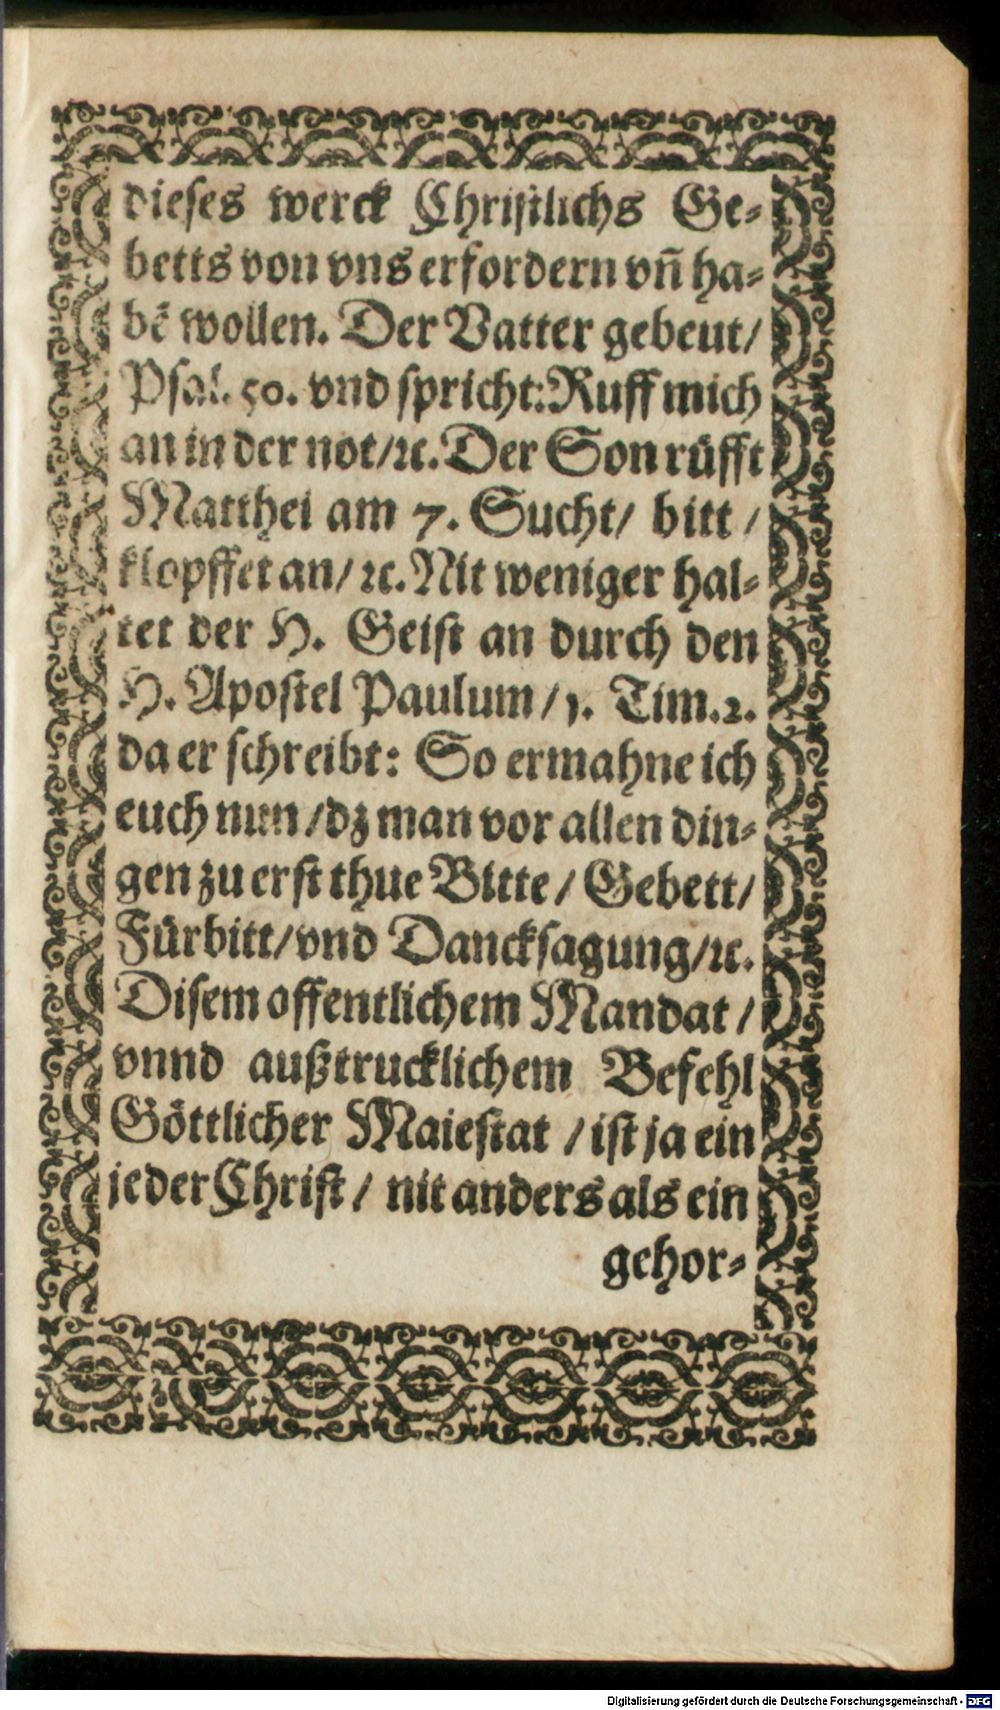 dieses werck Christlichs Ge-
betts von vns erfordern vñ ha-
bẽ wollen. Der Vatter gebeut/
Psal. 50. vnd spricht: Ruff mich
an in der not/ꝛc. Der Son rüfft
Matthei am 7. Sucht/ bitt /
klopffet an/ ꝛc. Nit weniger hal-
tet der H. Geist an durch den
H. Apostel Paulum / 1. Tim. 2.
da er schreibt: So ermahne ich
euch nun /dz man vor allen din-
gen zu erst thue Bitte / Gebett/
Fürbitt/vnd Dancksagung/ꝛc.
Disem offentlichem Mandat /
vnnd außtrucklichem Befehl
Göttlicher Maiestat / ist ja ein
jeder Christ / nit anders als ein
gehor-
Digitalisierung gefördert durch die Deutsche Forschungsgemeinschaft - DFG